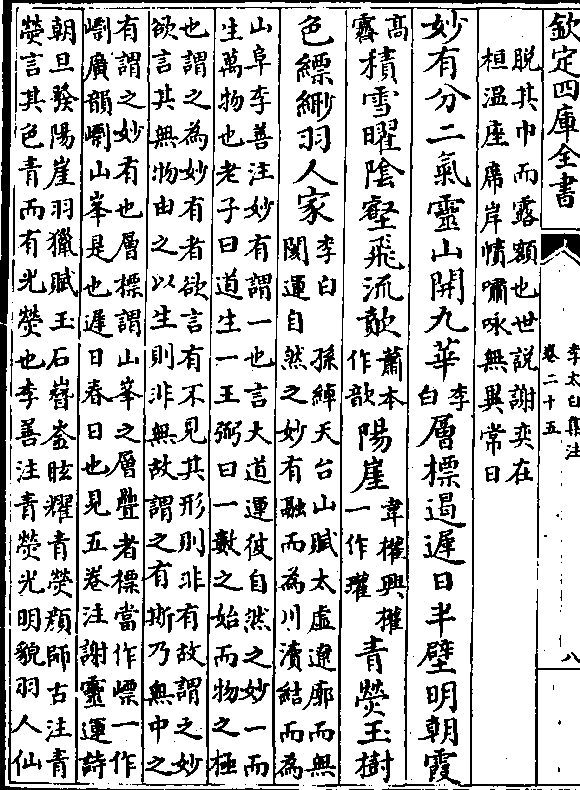 欽定四庫全書
李太白集注
卷二十五
八
脱其巾而露額也世說謝奕在
桓温座席岸幘嘯咏無異常日
妙有分二氣靈山開九華李白層標遏遲日半壁明朝霞
高霽積雪曜陰壑飛流歕蕭本作歊陽崖韋權輿權一作瓘青熒玉樹
色縹緲羽人家李白孫綽天台山賦太虚遼廓而無
閡運自然之妙有融而為川瀆結而為
山阜李善注妙有謂一也言大道運彼自然之妙一而
生萬物也老子曰道生一王弼曰一數之始而物之極
也謂之為妙有者欲言有不見其形則非有故謂之妙
欲言其無物由之以生則非無故謂之有斯乃無中之
有謂之妙有也層標謂山峯之層疊者標當作嘌一作
廣韻山峯是也遲日春日也見五卷注謝靈運詩
朝旦發陽崖羽獵賦玉石嶜崟眩耀青熒顔師古注青
熒言其色青而有光熒也李善注青熒光明貌羽人仙